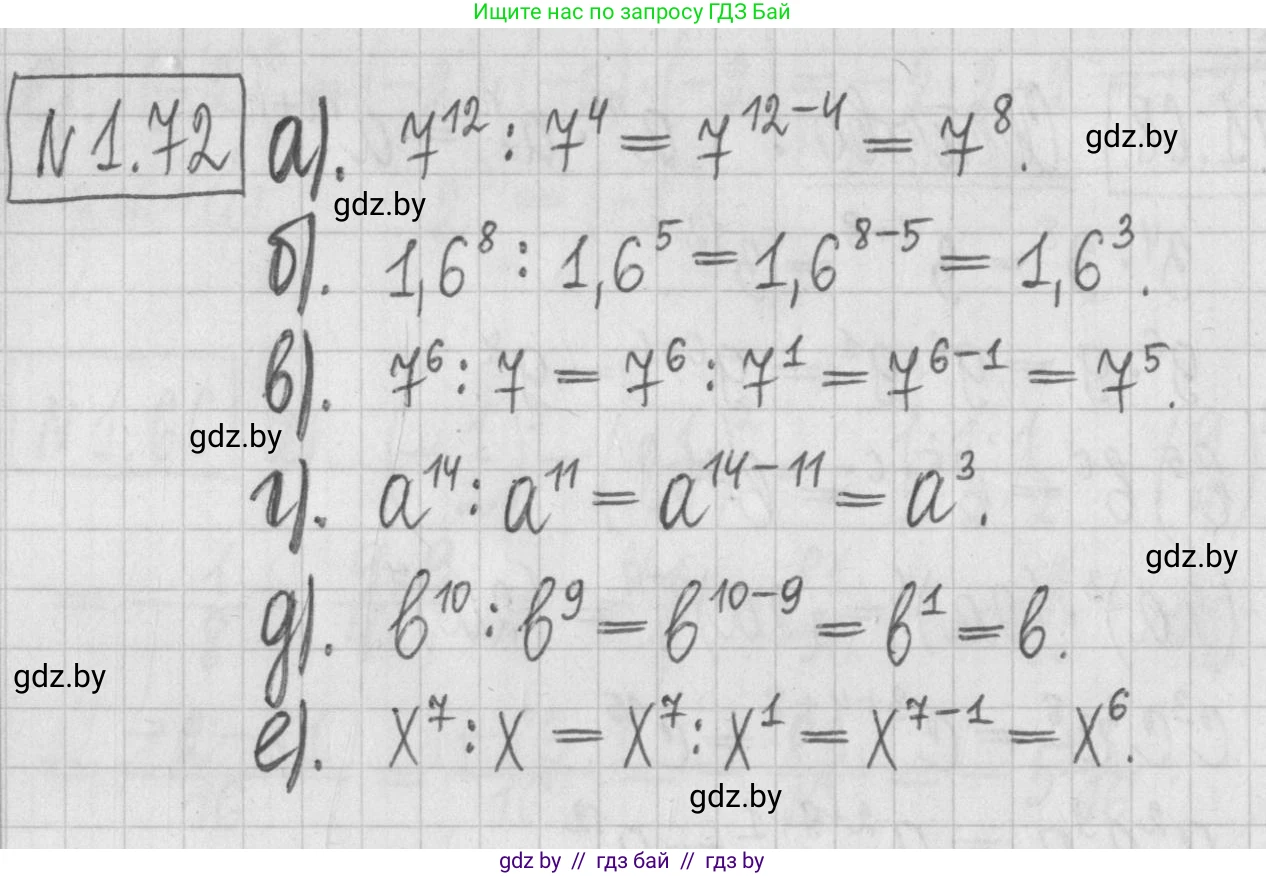 Ищите нас по запросу ГДЗ Бай
N 1.72 а). 7¹² : 7⁴ = 7¹²⁻⁴ = 7⁸.
gdz.by
gdz.by
б). 1,6⁸ : 1,6⁵ = 1,6⁸⁻⁵ = 1,6³.
в). 7⁶ : 7 = 7⁶ : 7¹ = 7⁶⁻¹ = 7⁵.
gdz.by
г). a¹⁴ : a¹¹ = a¹⁴⁻¹¹ = a³.
gdz.by
д). b¹⁰ : b⁹ = b¹⁰⁻⁹ = b¹ = b.
gdz.by
е). x⁷ : x = x⁷ : x¹ = x⁷⁻¹ = x⁶.
gdz.by
gdz by // гдз бай // гдз by